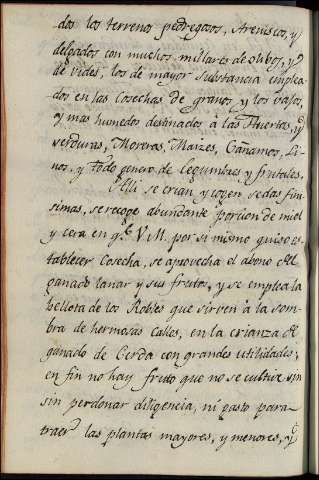 dos los terrenos pedregosos, Areniscos, y
delgados con muchos millares de olibos, y
de vides, los de mayor substancia emplea
dos en las Cosechas de granos, y los vajos,
y mas humedos destinados à las Huertas, y
verduras, Moreras, Maizes, Cañamos, Li-
nos, y todo genero de Legumbres y frutales.
Alli se crian, y cogen sedas finis
simas, se recoge abundante porcion de miel
y cera en q.e V. M. por si mismo quiso es
tablecer Cosecha, se aprovecha el abono del
ganado lanar y sus frutos, y se emplea la
bellota de los Robles que sirven à la som
bra de hermosas calles, en la crianza de
ganado de Cerda con grandes utilidades,
en fin no hay fruto que no se cultive sin
sin perdonar diligencia, ni gasto para
traer las plantas mayores, y menores, y